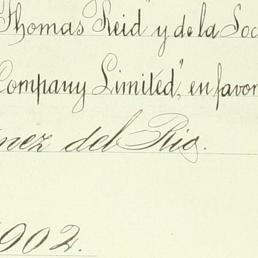 Thomas Reid" y de la Soc
Company Limited", en favor
nez del Rio.
1902.